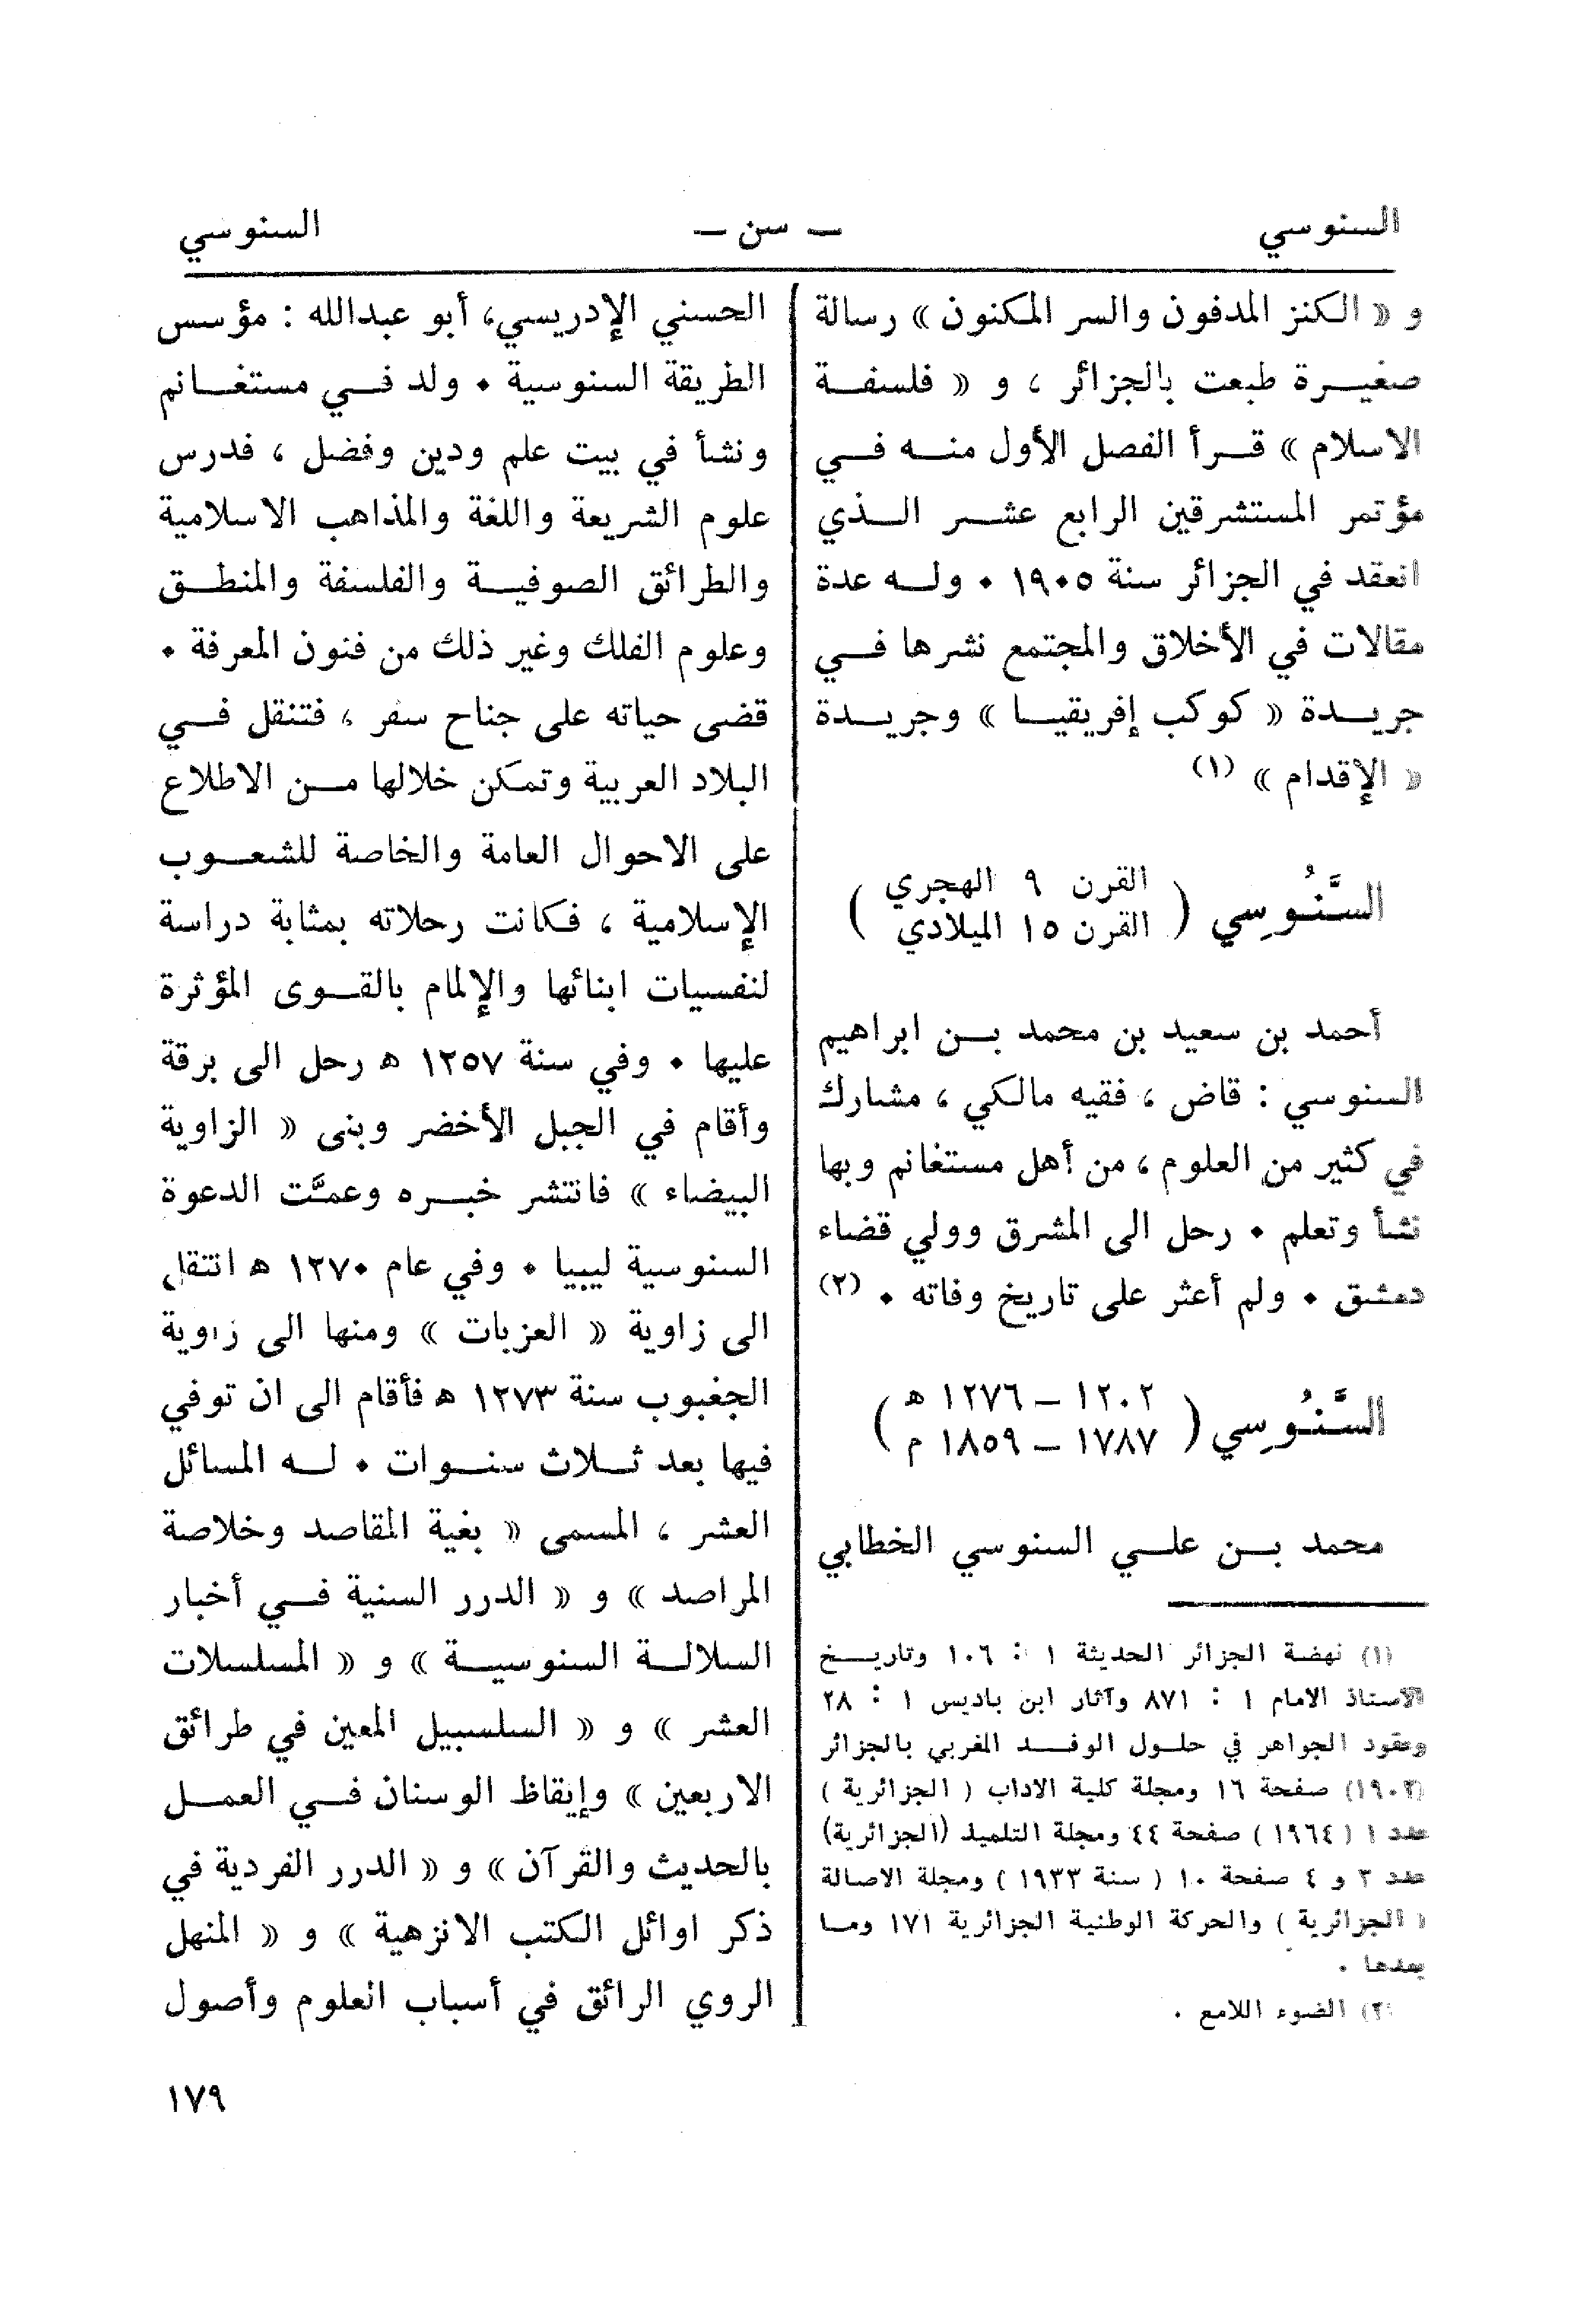 السنوسي — سن — السنوسي
و « الكنز المدفون والسر المكنون » رسالة
صغيرة طبعت بالجزائر ، و « فلسفة
الاسلام » قرأ الفصل الأول منه في
مؤتمر المستشرقين الرابع عشر الذي
انعقد في الجزائر سنة ١٩٠٥ ٠ وله عدة
مقالات في الأخلاق والمجتمع نشرها في
جريدة « كوكب إفريقيا » وجريدة
« الإقدام » (١)
السَّنُوسِي ( القرن ٩ الهجري
القرن ١٥ الميلادي )
أحمد بن سعيد بن محمد بن ابراهيم
السنوسي : قاض ، فقيه مالكي ، مشارك
في كثير من العلوم ، من أهل مستغانم وبها
نشأ وتعلم ٠ رحل الى المشرق وولي قضاء
دمشق ٠ ولم أعثر على تاريخ وفاته ٠ (٢)
السَّنُوسِي ( ١٢٠٢ — ١٢٧٦ هـ
١٧٨٧ — ١٨٥٩ م )
محمد بن علي السنوسي الخطابي
(١) نهضة الجزائر الحديثة ١ : ١٠٦ وتاريخ
الاستاذ الامام ١ : ٨٧١ وآثار ابن باديس ١ : ٢٨
وعقود الجواهر في حلول الوفد المغربي بالجزائر
(١٩٠٢) صفحة ١٦ ومجلة كلية الاداب ( الجزائرية )
عدد ١ ( ١٩٦٤ ) صفحة ٤٤ ومجلة التلميذ (الجزائرية)
عدد ٣ و ٤ صفحة ١٠ ( سنة ١٩٣٣ ) ومجلة الاصالة
( الجزائرية ) والحركة الوطنية الجزائرية ١٧١ وما
بعدها .
(٢) الضوء اللامع .
الحسني الإدريسي، أبو عبدالله : مؤسس
الطريقة السنوسية ٠ ولد في مستغانم
ونشأ في بيت علم ودين وفضل ، فدرس
علوم الشريعة واللغة والمذاهب الاسلامية
والطرائق الصوفية والفلسفة والمنطق
وعلوم الفلك وغير ذلك من فنون المعرفة ٠
قضى حياته على جناح سفر ، فتنقل في
البلاد العربية وتمكن خلالها من الاطلاع
على الاحوال العامة والخاصة للشعوب
الإسلامية ، فكانت رحلاته بمثابة دراسة
لنفسيات ابنائها والإلمام بالقوى المؤثرة
عليها ٠ وفي سنة ١٢٥٧ هـ رحل الى برقة
وأقام في الجبل الأخضر وبنى « الزاوية
البيضاء » فانتشر خبره وعمَّت الدعوة
السنوسية ليبيا ٠ وفي عام ١٢٧٠ هـ انتقل
الى زاوية « العزبات » ومنها الى زاوية
الجغبوب سنة ١٢٧٣ هـ فأقام الى ان توفي
فيها بعد ثلاث سنوات ٠ له المسائل
العشر ، المسمى « بغية المقاصد وخلاصة
المراصد » و « الدرر السنية في أخبار
السلالة السنوسية » و « المسلسلات
العشر » و « السلسبيل المعين في طرائق
الاربعين » وإيقاظ الوسنان في العمل
بالحديث والقرآن » و « الدرر الفردية في
ذكر اوائل الكتب الانزهية » و « المنهل
الروي الرائق في أسباب العلوم وأصول
١٧٩